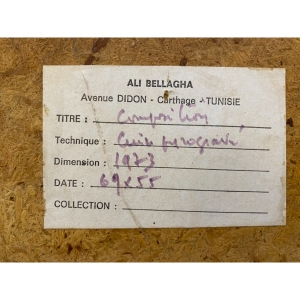 ALI BELLAGHA
Avenue DIDON - Carthage - TUNISIE
TITRE : Composition
Technique : Cuir pyrogravé
Dimension : 1973
DATE : 69x55
COLLECTION :